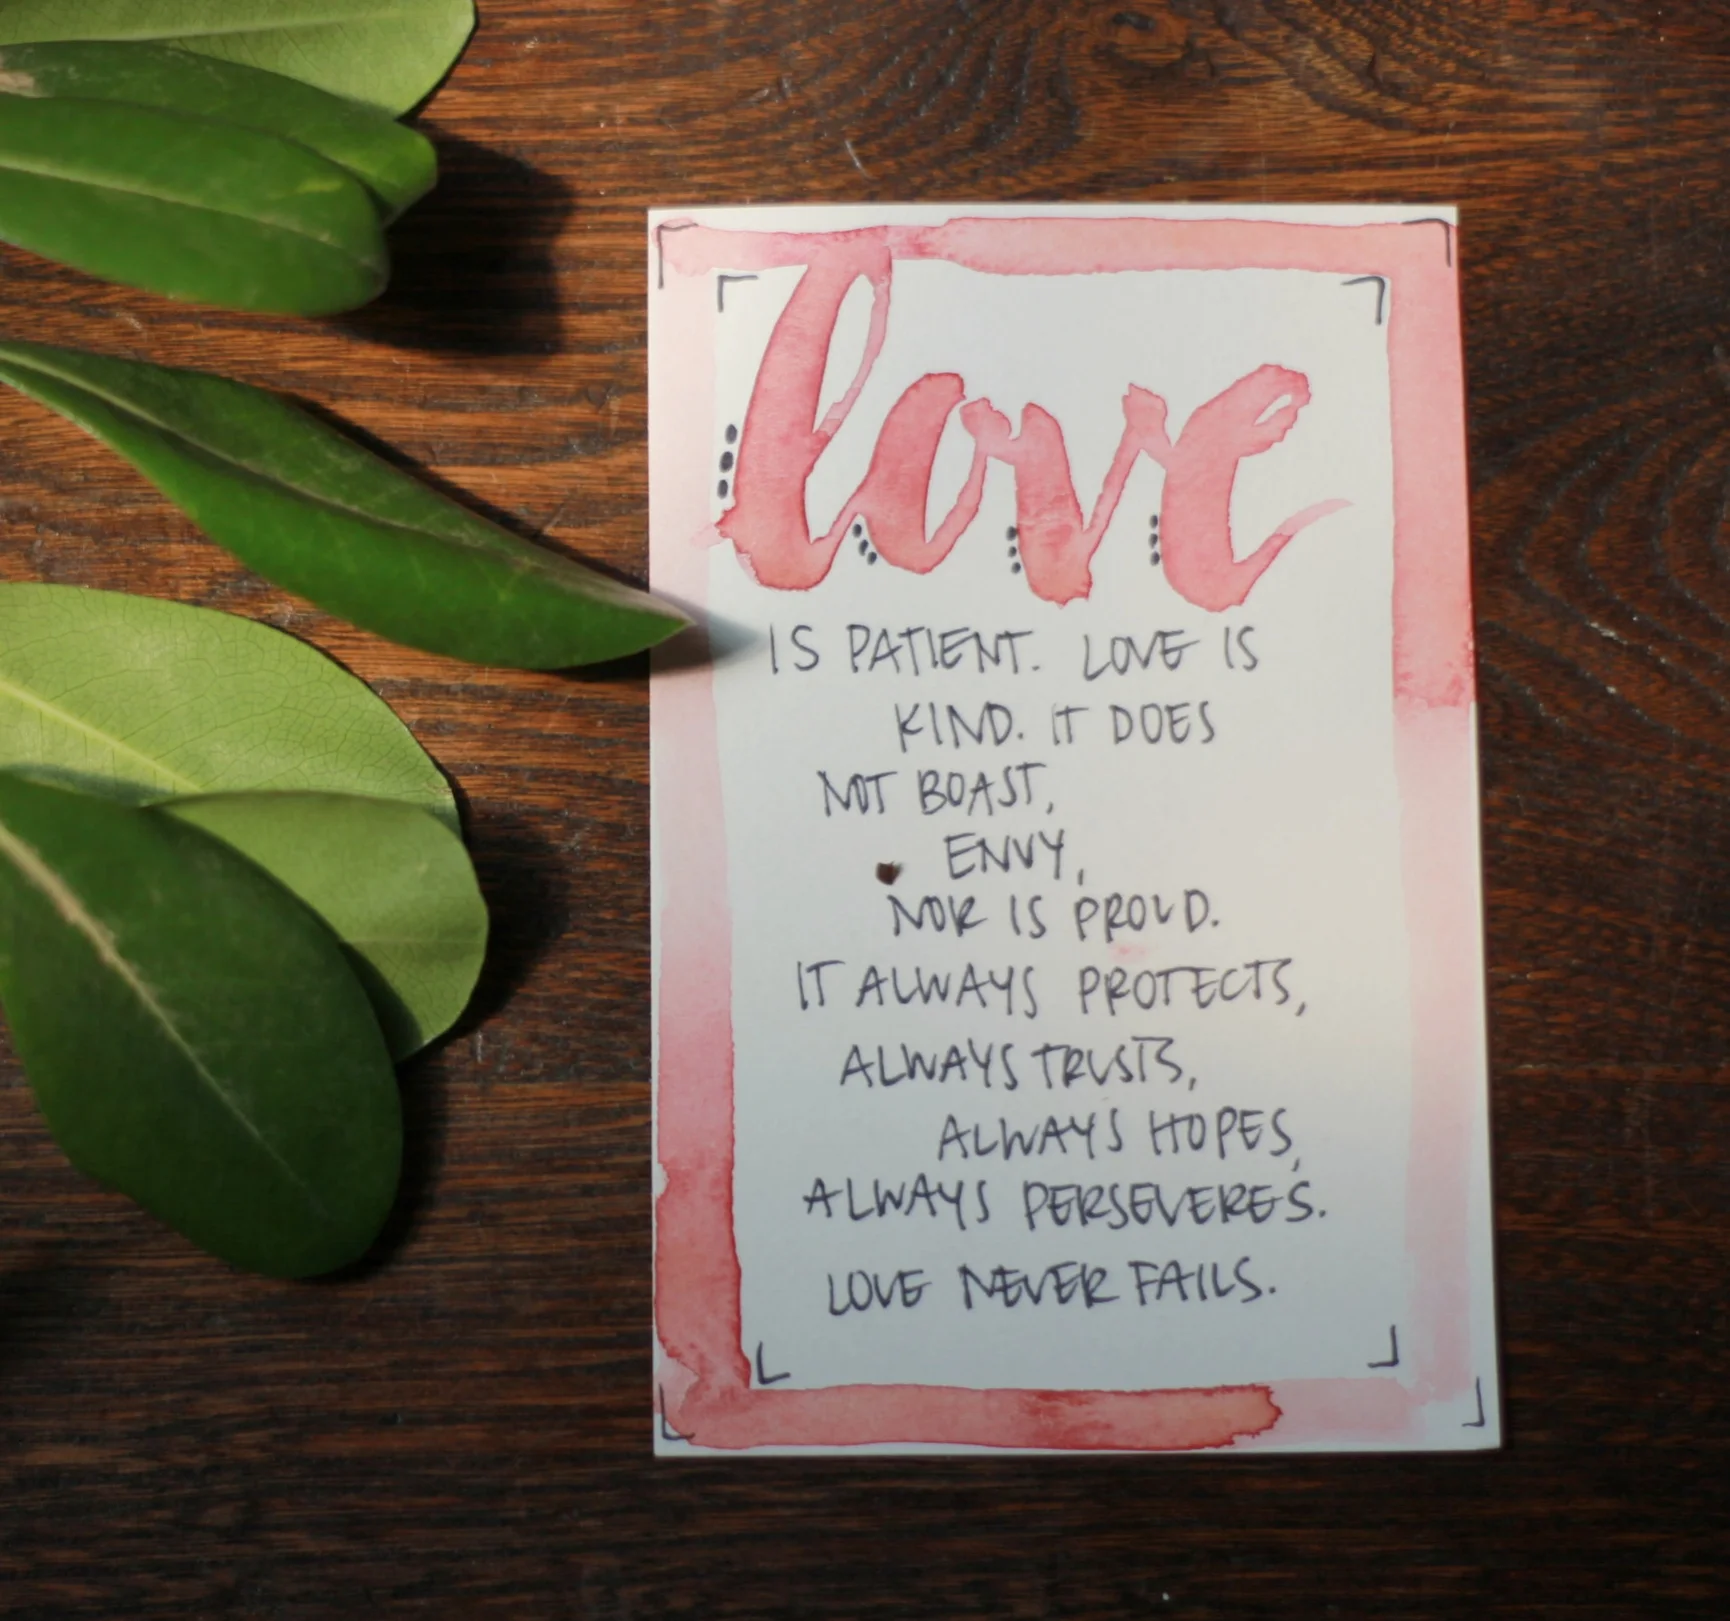 love
IS PATIENT. LOVE IS
KIND. IT DOES
NOT BOAST,
ENVY,
NOR IS PROUD.
IT ALWAYS PROTECTS,
ALWAYS TRUSTS,
ALWAYS HOPES,
ALWAYS PERSEVERES.
LOVE NEVER FAILS.